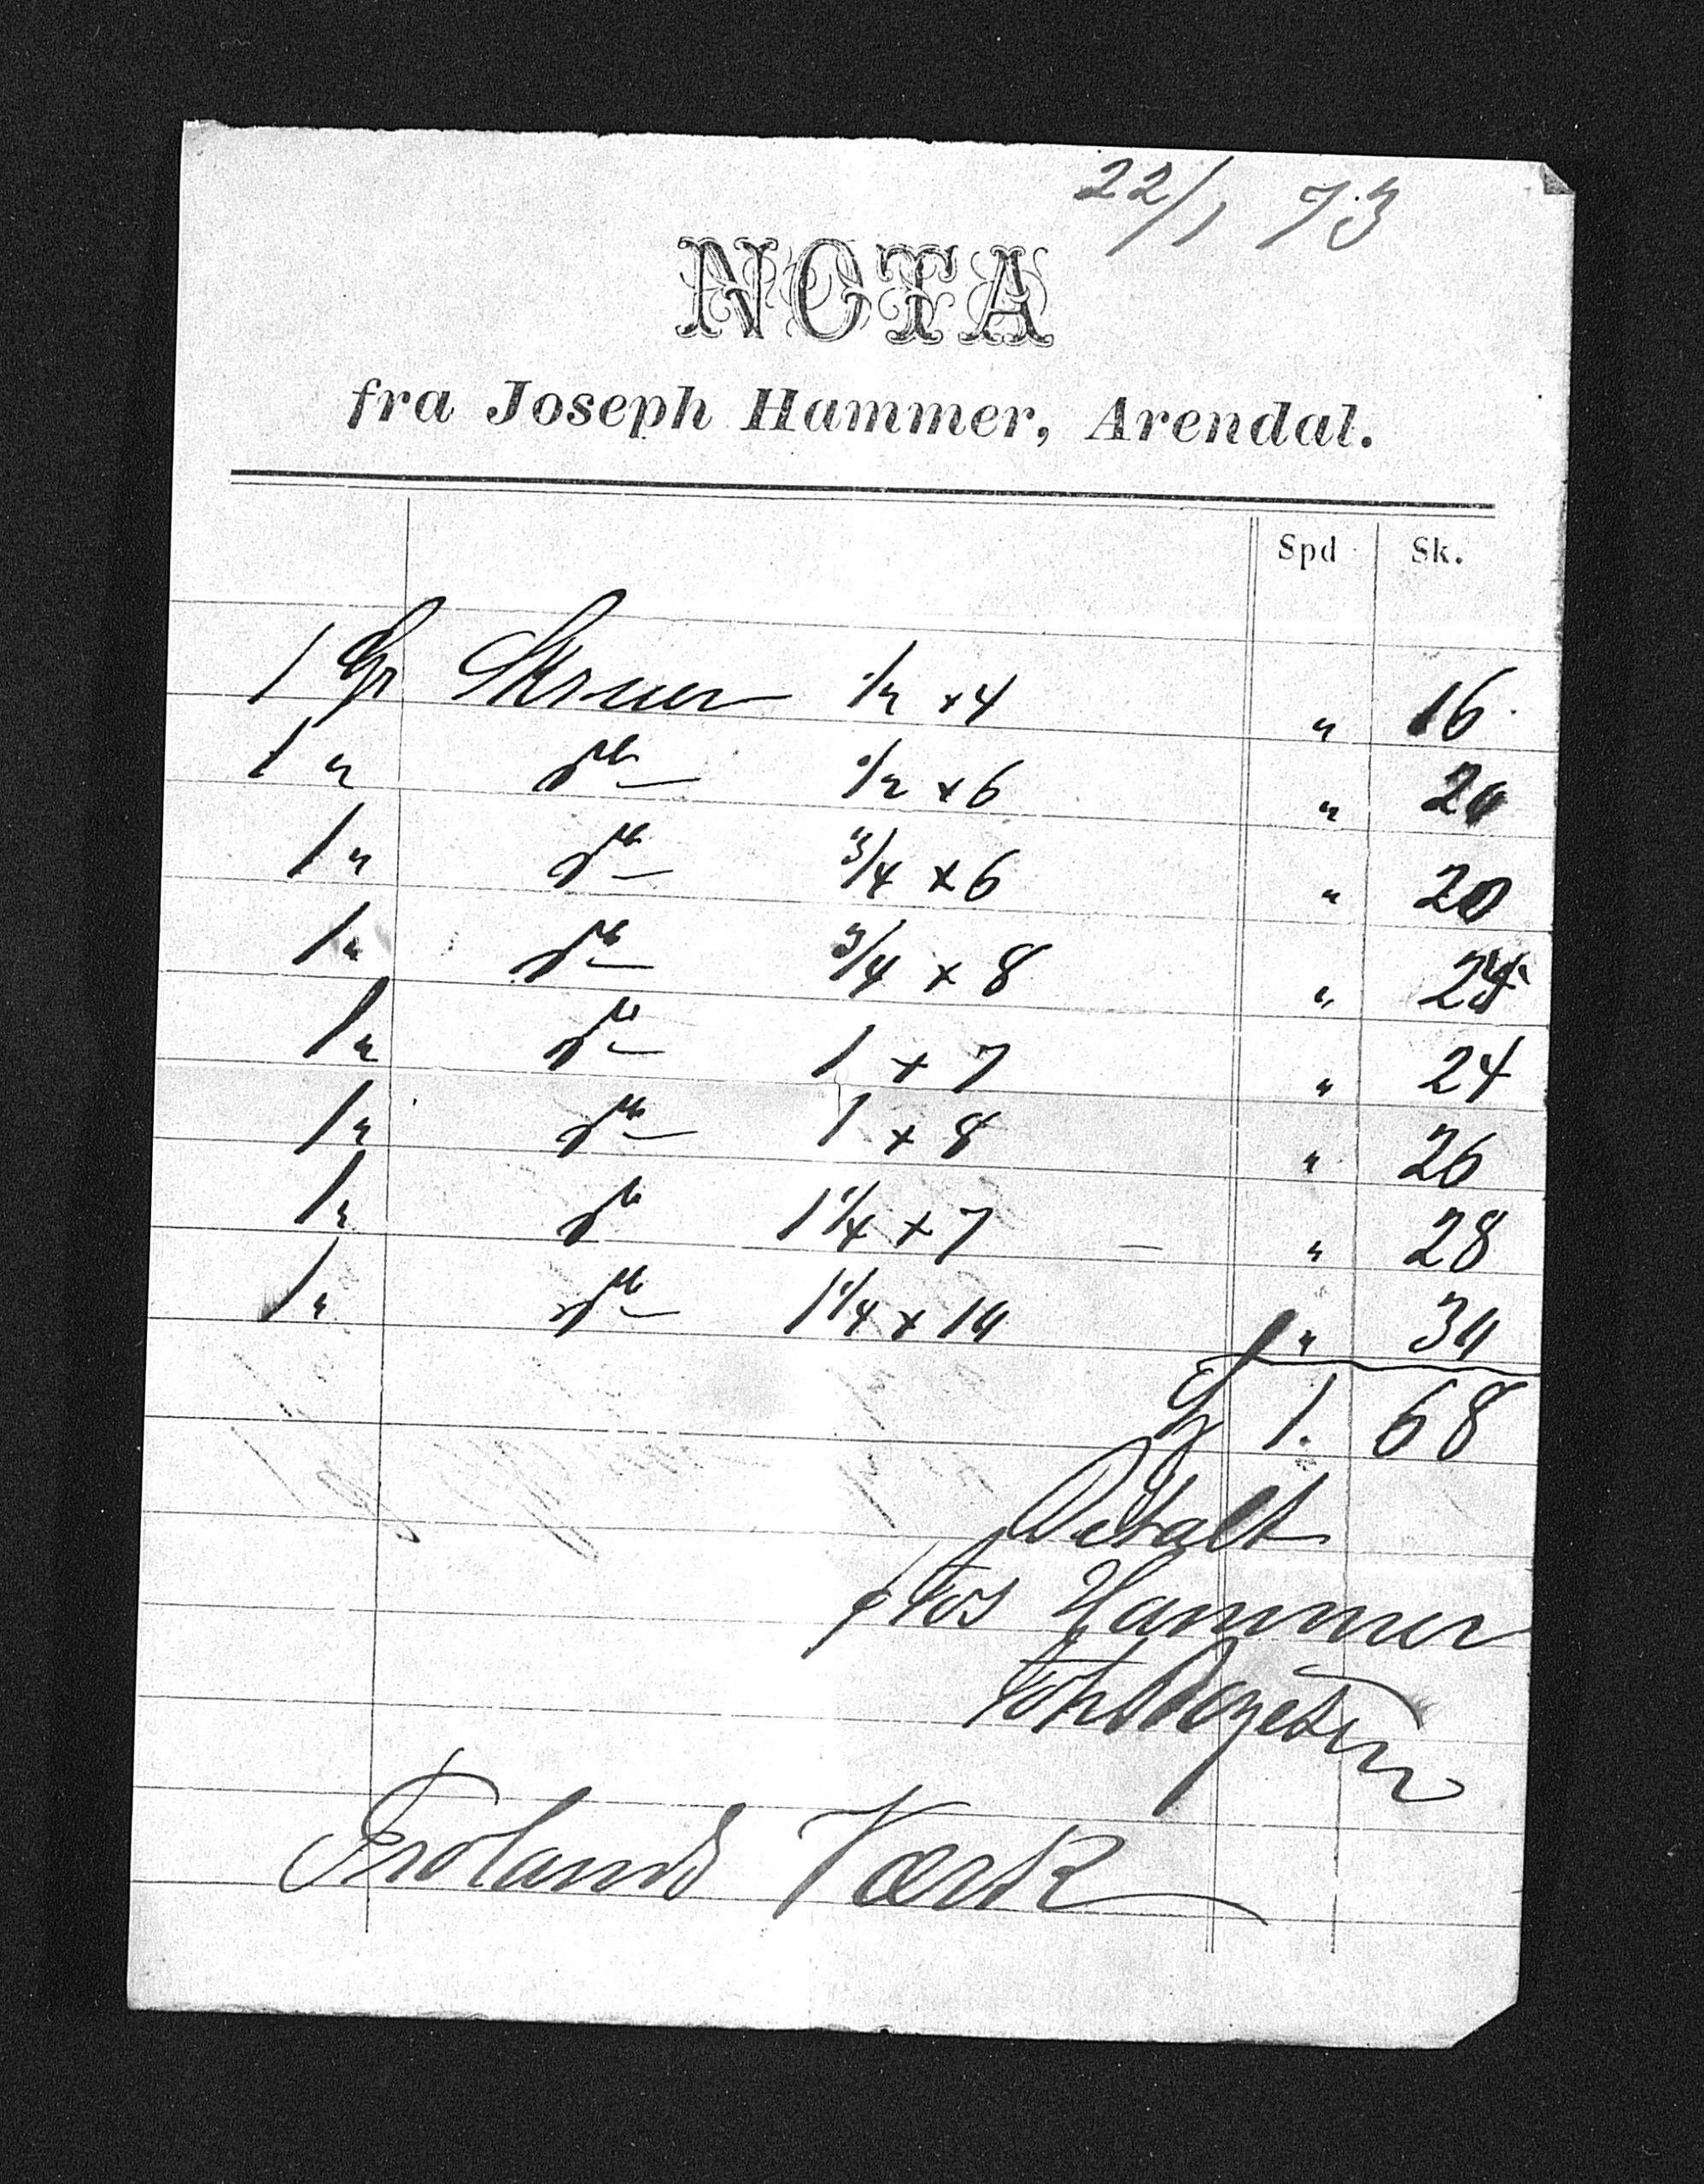 22/1 73
NOTA
fra Joseph Hammer, Arendal.
Spd Sk.
1 Gr Skruer 1/2 x 4 " 16
1 " do 1/2 x 6 " 20
1 " do 3/4 x 6 " 20
1 " do 3/4 x 8 " 24
1 " do 1 x 7 " 24
1 " do 1 x 8 " 26
1 " do 1 1/4 x 7 — " 28
1 " do 1 1/4 x 10 " 30
1. 68
Betalt
p Jos Hammer
Frolands Værk